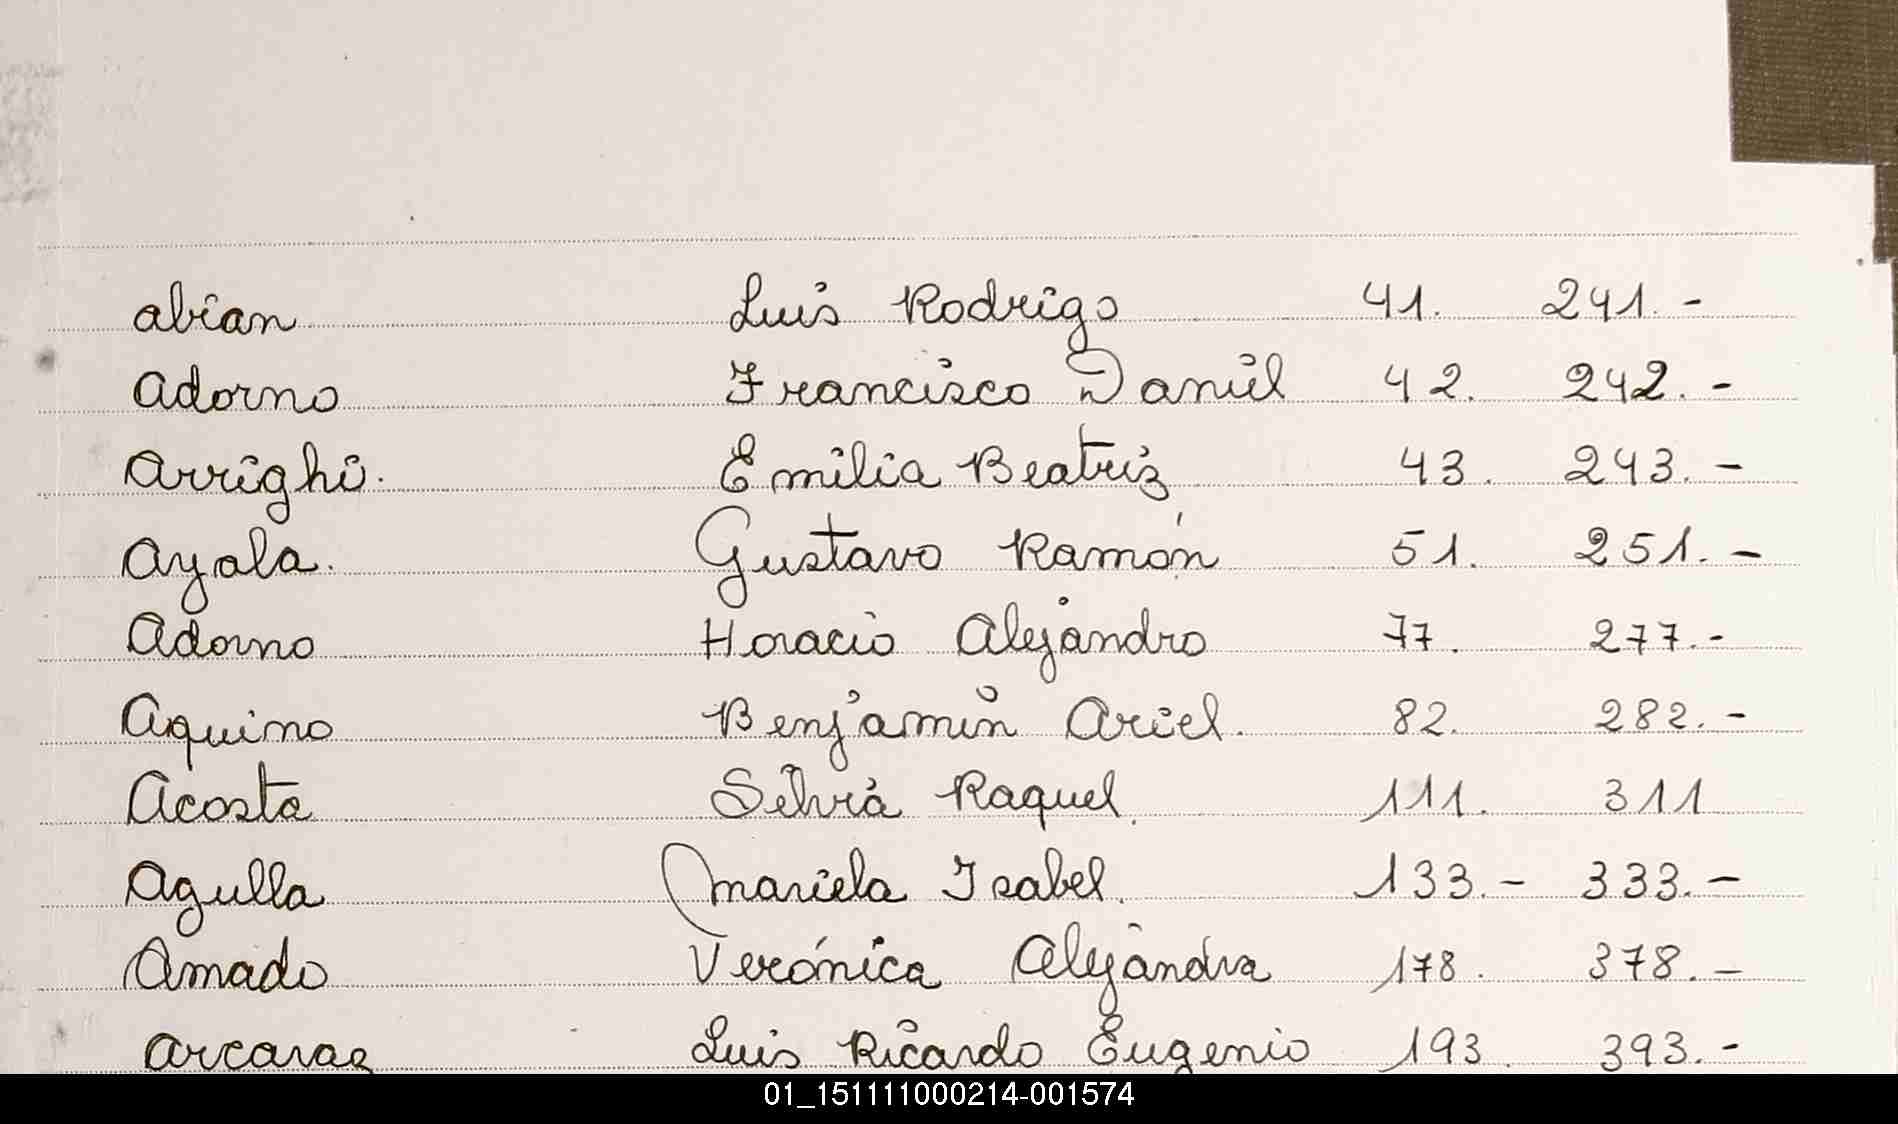 abian Luis Rodrigo 41. 241.-
Adorno Francisco Daniel 42. 242.-
Arrighi. Emilia Beatriz 43. 243.-
Ayala. Gustavo Ramón 51. 251.-
Adorno Horacio Alejandro 77. 277.-
Aquino Benjamin Ariel. 82. 282.-
Acosta Silvia Raquel. 111. 311
Agulla Mariela Isabel. 133.- 333.-
Amado Verónica Alejandra 178. 378.-
Arcaraz Luis Ricardo Eugenio 193. 393.-
01_151111000214-001574